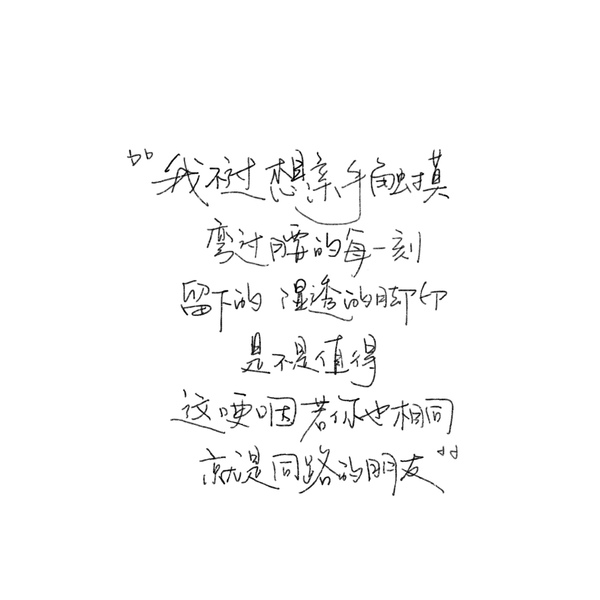 “我不过想亲手触摸
弯过腰的每一刻
留下的 湿透的脚印
是不是值得
这哽咽若你也相同
就是同路的朋友”